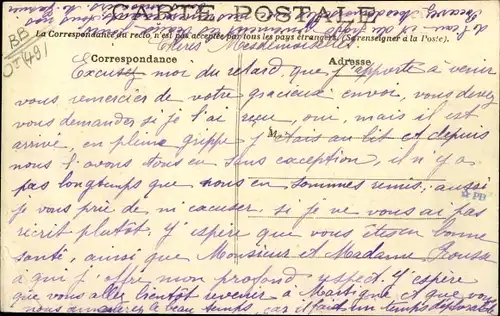 CARTE POSTALE
La Correspondance au recto n'est pas acceptée par tous les pays étrangers. (Se renseigner à la Poste).
Chères Mesdemoiselles
Correspondance
Adresse
BB
Excusez moi du retard que j'apporte à venir
vous remercier de votre gracieux envoi, vous devez
vous demander si je l'ai reçu, oui, mais il est
M
arrivé, en pleine grippe j'étais au lit et depuis
nous l'avons tous eu sans exception, il n'y a
pas longtemps que nous en sommes remis, aussi
je vous prie de m'excuser si je ne vous ai pas
écrit plutôt. J'espère que vous êtes en bonne
santé, ainsi que Monsieur et Madame
à qui j'offre mon profond respect. J'espère
que vous allez bientôt revenir à Martigné et que vous
nous le beau temps, car il fait un temps déplorable